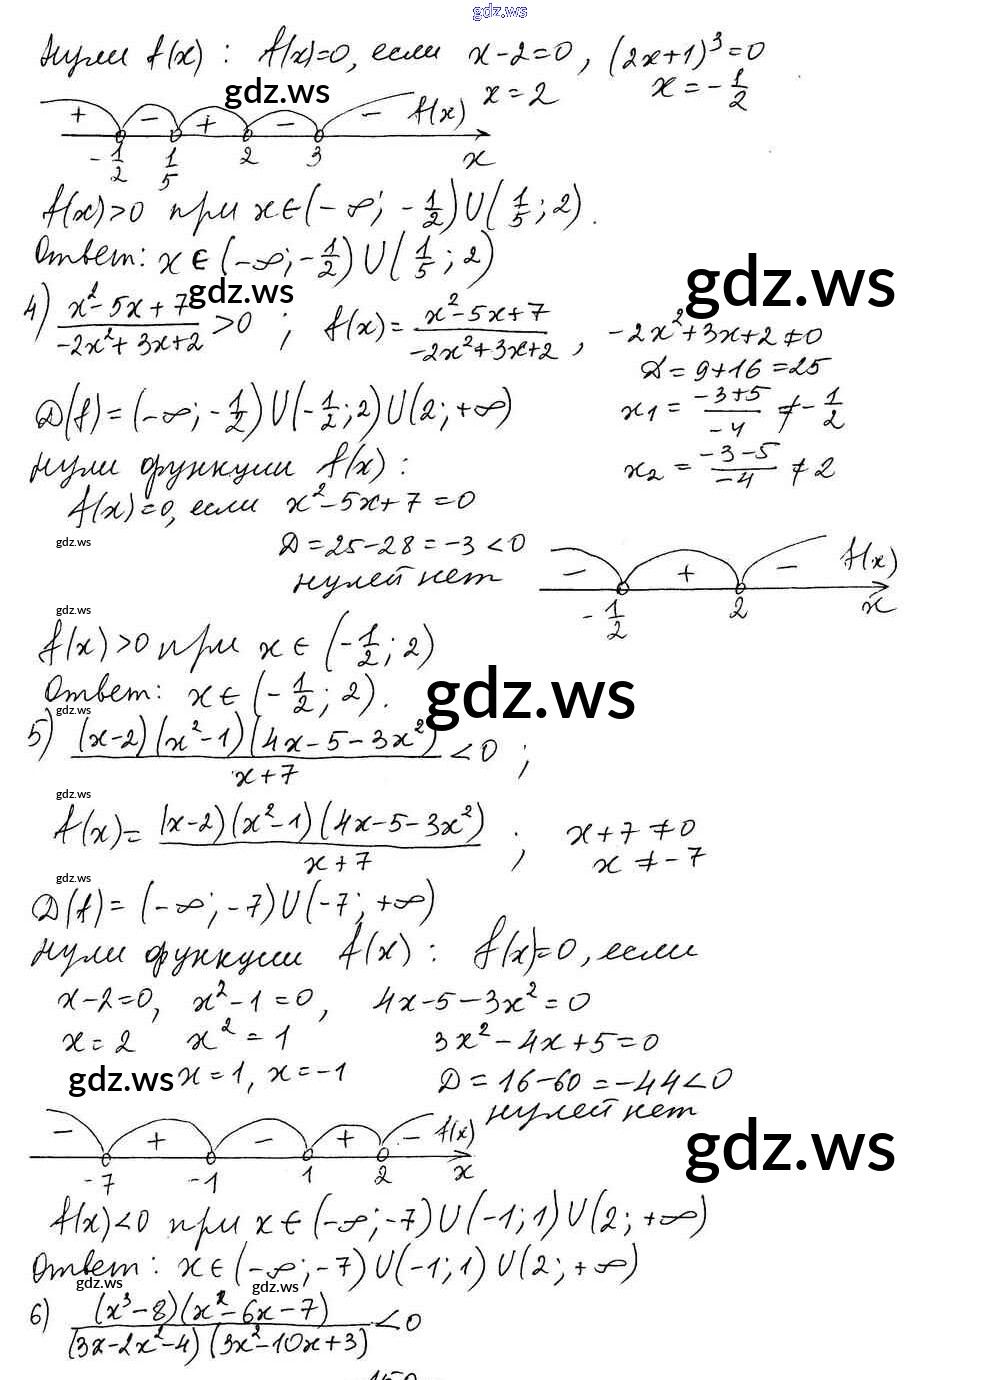 gdz.ws
Нули f(x): f(x)=0, если x-2=0, (2x+1)³=0
gdz.ws x=2 x=-1/2
+ - + - - f(x)
-1/2 1/5 2 3 x
f(x)>0 при x∈(-∞; -1/2)∪(1/5; 2).
Ответ: x∈(-∞; -1/2)∪(1/5; 2)
gdz.ws gdz.ws
4) (x²-5x+7)/(-2x²+3x+2) >0 ; f(x)=(x²-5x+7)/(-2x²+3x+2), -2x²+3x+2≠0
D=9+16=25
D(f)=(-∞; -1/2)∪(-1/2; 2)∪(2; +∞) x₁=(-3+5)/-4 ≠-1/2
нули функции f(x): x₂=(-3-5)/-4 ≠2
f(x)=0, если x²-5x+7=0
gdz.ws D=25-28=-3<0
нулей нет
- + - f(x)
-1/2 2 x
gdz.ws
f(x)>0 при x∈(-1/2; 2)
Ответ: x∈(-1/2; 2).
gdz.ws gdz.ws
5) (x-2)(x²-1)(4x-5-3x²)/(x+7) <0 ;
gdz.ws
f(x)=(x-2)(x²-1)(4x-5-3x²)/(x+7) ; x+7≠0
x≠-7
gdz.ws
D(f)=(-∞; -7)∪(-7; +∞)
нули функции f(x): f(x)=0, если
x-2=0, x²-1=0, 4x-5-3x²=0
x=2 x²=1 3x²-4x+5=0
gdz.ws x=1, x=-1 D=16-60=-44<0
нулей нет
- + - + - f(x)
-7 -1 1 2 x
gdz.ws
f(x)<0 при x∈(-∞; -7)∪(-1; 1)∪(2; +∞)
Ответ: x∈(-∞; -7)∪(-1; 1)∪(2; +∞)
gdz.ws gdz.ws
6) (x³-8)(x²-6x-7)/(3x-2x²-4)(3x²-10x+3) <0